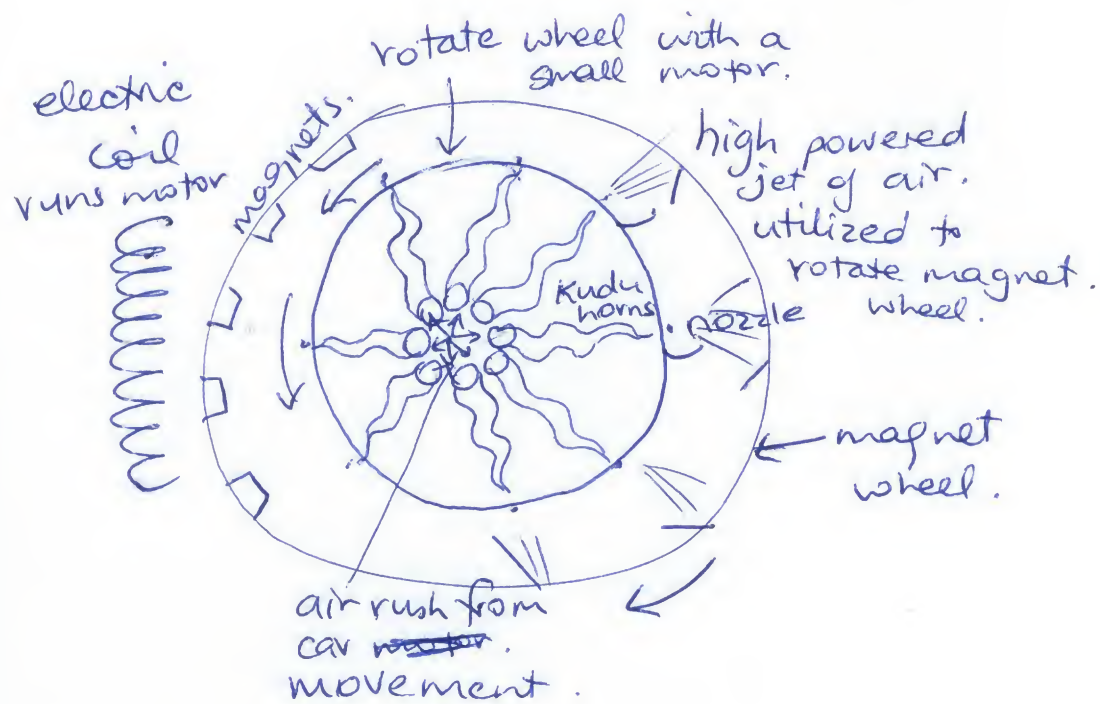 rotate wheel with a
small motor.
electric
coil
runs motor
magnets.
high powered
jet of air.
utilized to
rotate magnet.
wheel.
Kudu
horns
nozzle
magnet
wheel.
air rush from
car motor.
movement.